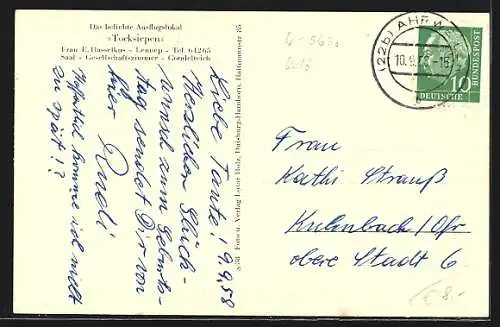 Das beliebte Ausflugslokal
»Tocksiepen«
Frau E. Hasselkus - Lennep - Tel. 61265
Saal - Gesellschaftszimmer - Gondelteich
a/58 Foto u. Verlag Lister Holz, Duisburg-Hamborn, Halfmannstr. 85
9.9.58
Liebe Tante!
Herzlichen Glück-
wunsch zum Geburts-
tag sendet Dir von
hier
Rudi
Hoffentlich komme ich nicht
zu spät!?
(22b) AHRWEILER
10.9.58-15
DEUTSCHE BUNDESPOST
10
Frau
Kathi Strauß
Kulmbach/Ofr
obere Stadt 6
€ 8.-